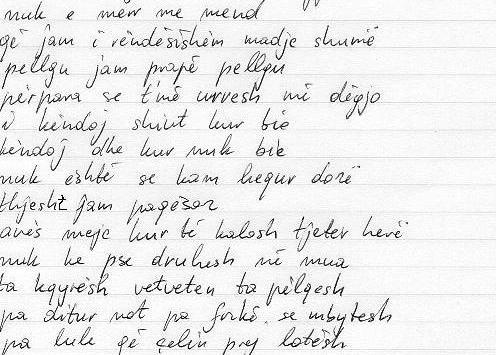 nuk e merr me mend
që jam i rëndësishëm madje shumë
pellgu jam prapë pellgu
përpara se t'më urresh më dëgjo
i këndoj shiut kur bie
këndoj dhe kur nuk bie
nuk është se kam hequr dorë
thjesht jam pagëzor
anës meje kur të kalosh tjetër herë
nuk ke pse druhesh në mua
ta kqyrësh vetveten ta pëlqesh
pa ditur not pa frikë se mbytesh
pa lule që çelin prej lotësh